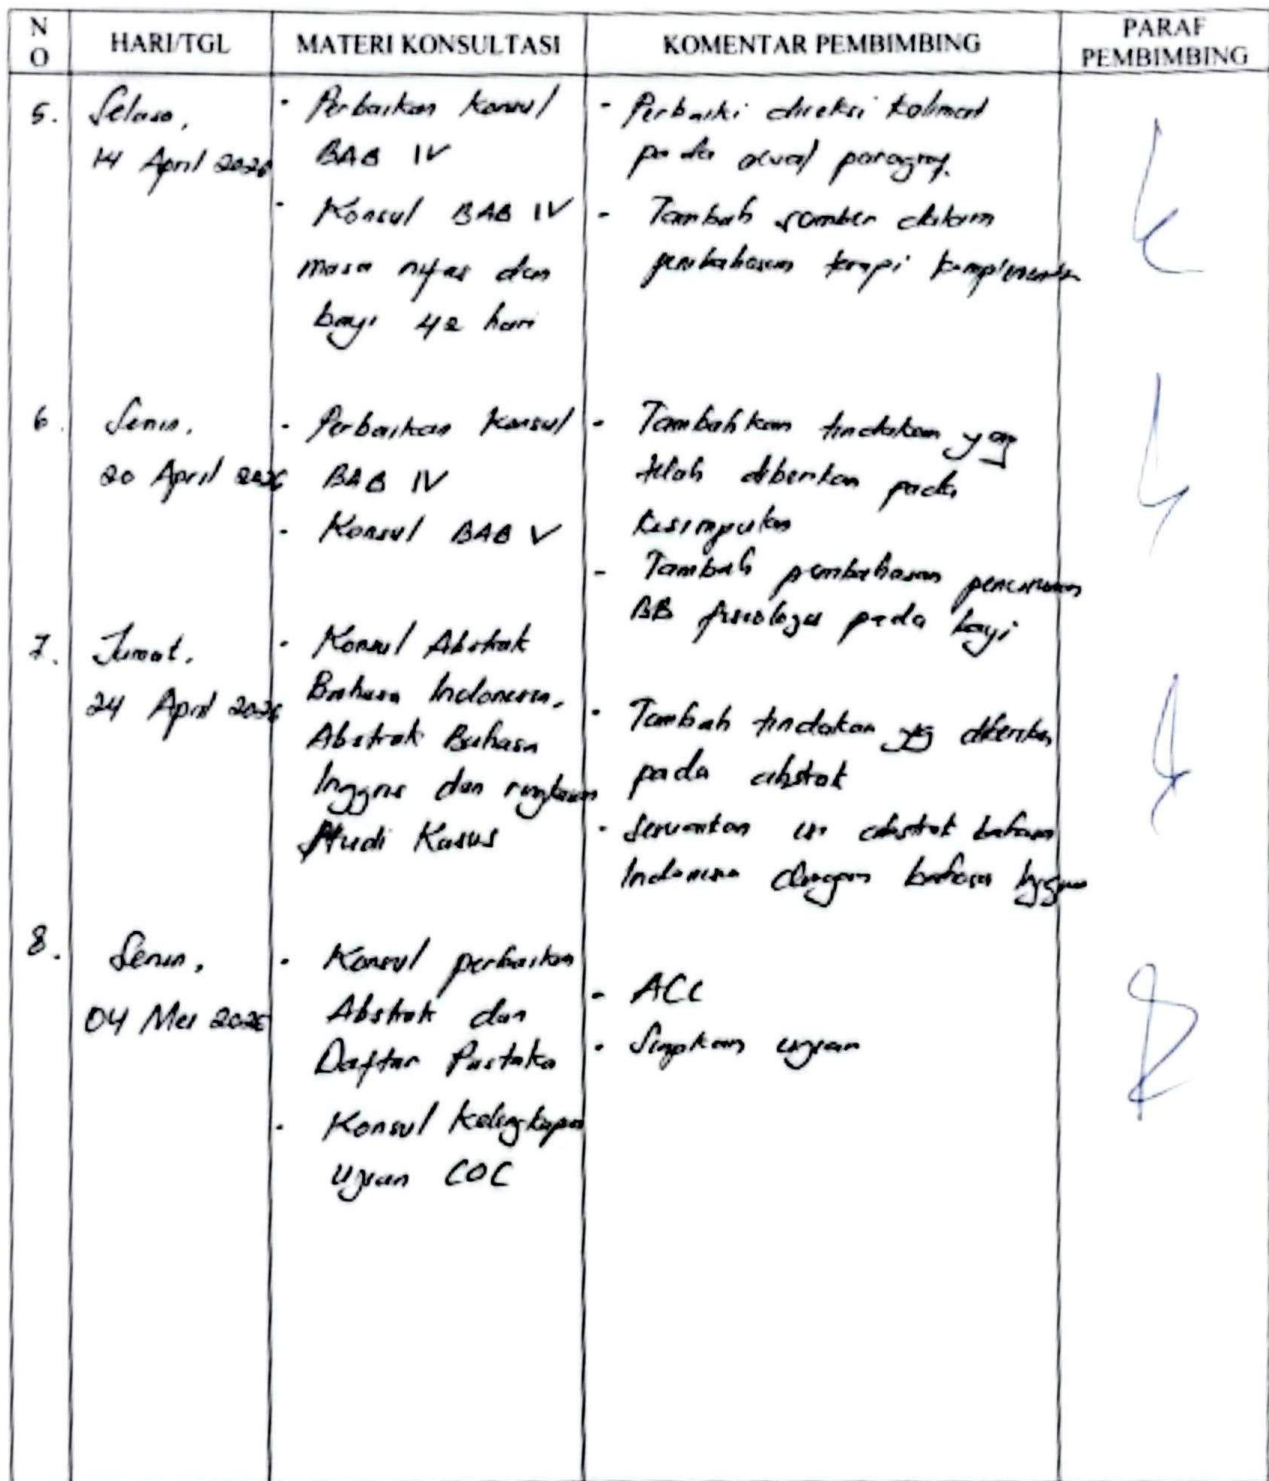 NO
HARI/TGL
MATERI KONSULTASI
KOMENTAR PEMBIMBING
PARAF PEMBIMBING
5.
Selasa,
14 April 2026
- Perbaikan Konsul
BAB IV
- Konsul BAB IV
masa nifas dan
bayi 42 hari
- Perbaiki direksi kalimat
pada awal paragraf.
- Tambah sumber dalam
pembahasan terapi komplementer
6.
Senin,
20 April 2026
- Perbaikan Konsul
BAB IV
- Konsul BAB V
- Tambahkan tindakan yang
telah diberikan pada
kesimpulan
- Tambah pembahasan penurunan
BB fisiologis pada bayi
7.
Jumat,
24 April 2026
- Konsul Abstrak
Bahasa Indonesia,
Abstrak Bahasa
Inggris dan ringkasan
Studi Kasus
- Tambah tindakan yg diberikan
pada abstrak
- Sesuaikan isi abstrak bahasa
Indonesia dengan bahasa Inggris
8.
Senin,
04 Mei 2026
- Konsul perbaikan
Abstrak dan
Daftar Pustaka
- Konsul Kelengkapan
Ujian COC
- ACC
- Siapkan ujian